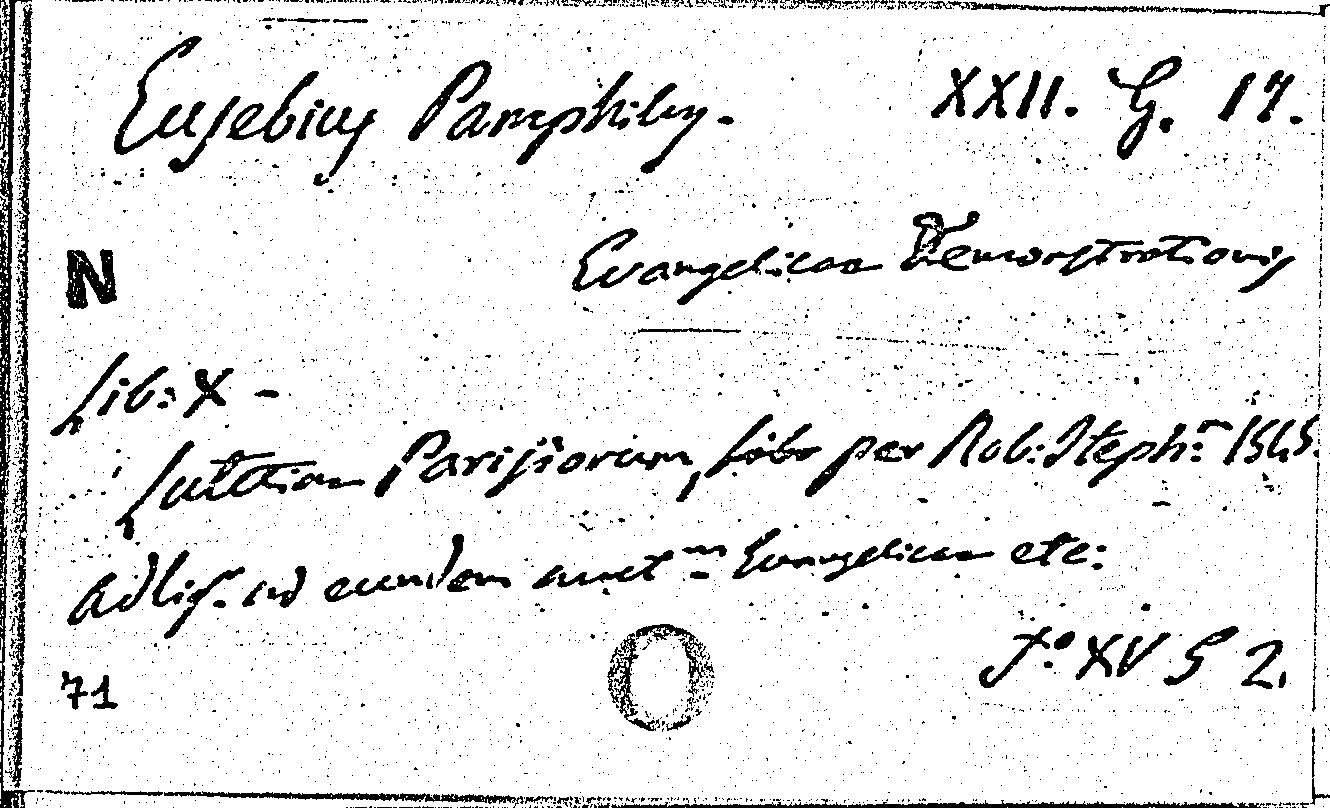 Eusebius Pamphilus. XXII. G. 17.
N
Evangelicae Demonstrationis
Lib: X -
Lutetiae Parisiorum, per Rob: Steph: 1545.
Adlig. ad eundem auct: Evangelicae etc:
XV G 2.
71